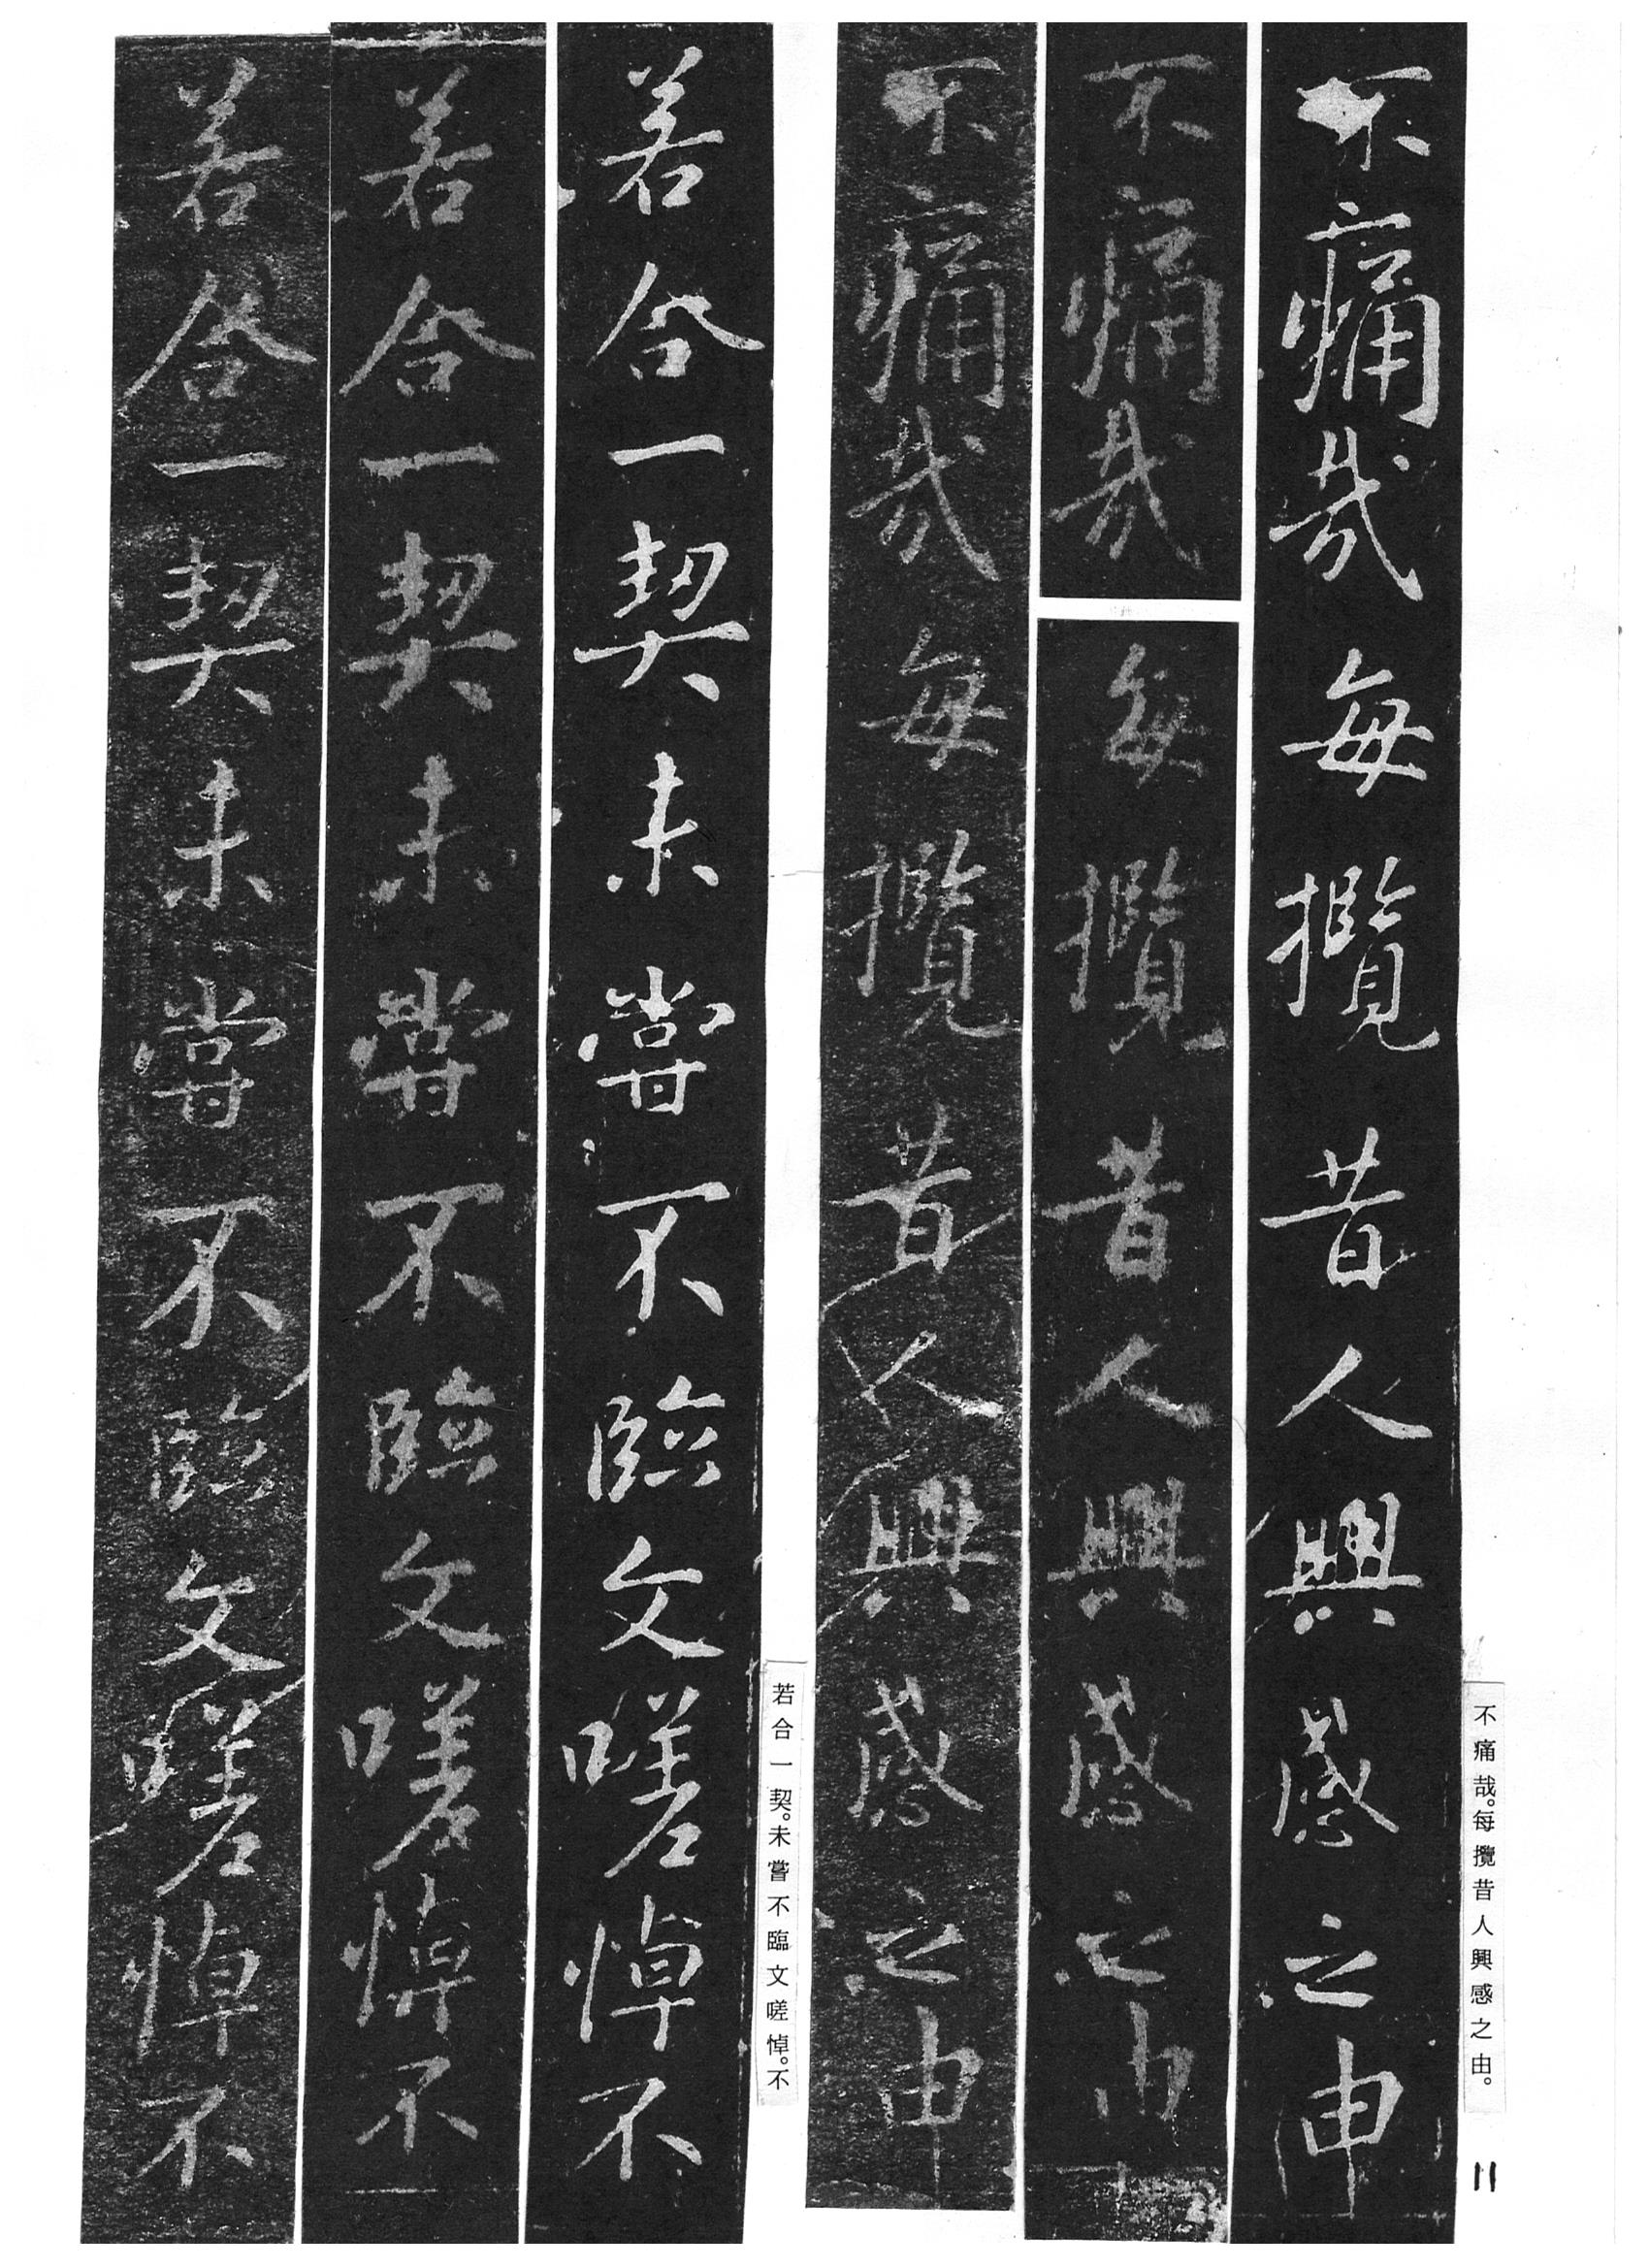 不痛哉。每攬昔人興感之由。
11
不痛哉每攬昔人興感之由
不痛哉每攬昔人興感之由
不痛哉每攬昔人興感之由
若合一契。未嘗不臨文嗟悼。不
若合一契未嘗不臨文嗟悼不
若合一契未嘗不臨文嗟悼不
若合一契未嘗不臨文嗟悼不